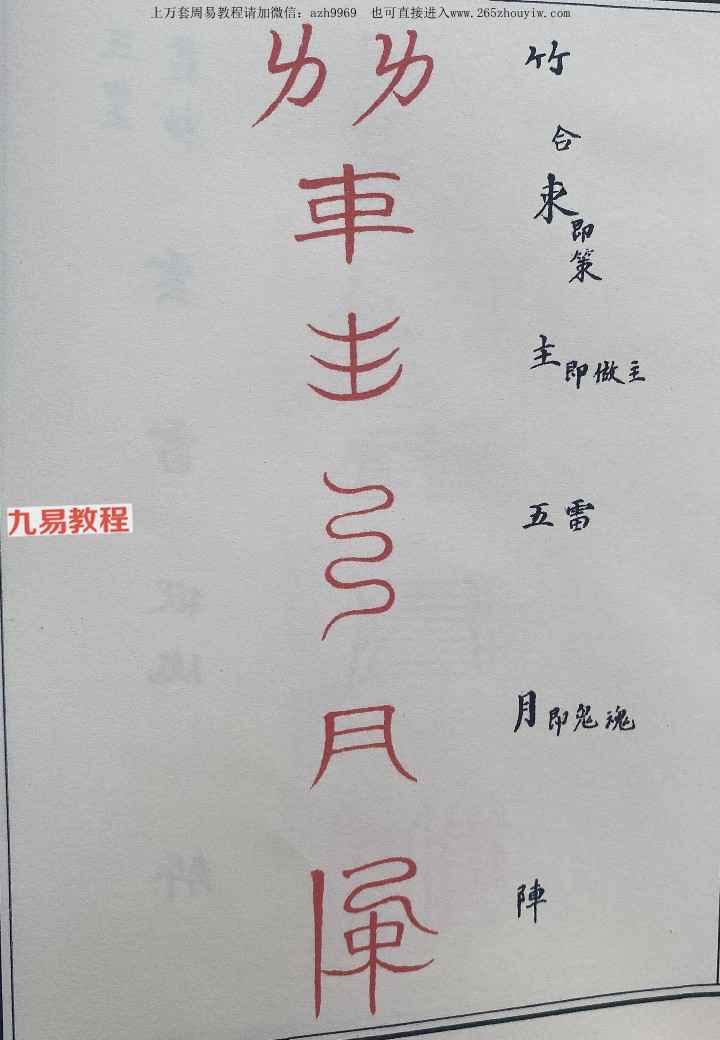 上万套周易教程请加微信：azh9969 也可直接进入www.265zhouyiw.com
竹
合
車
東
即
策
主 即做主
九易教程
五雷
月
月即鬼魂
陣